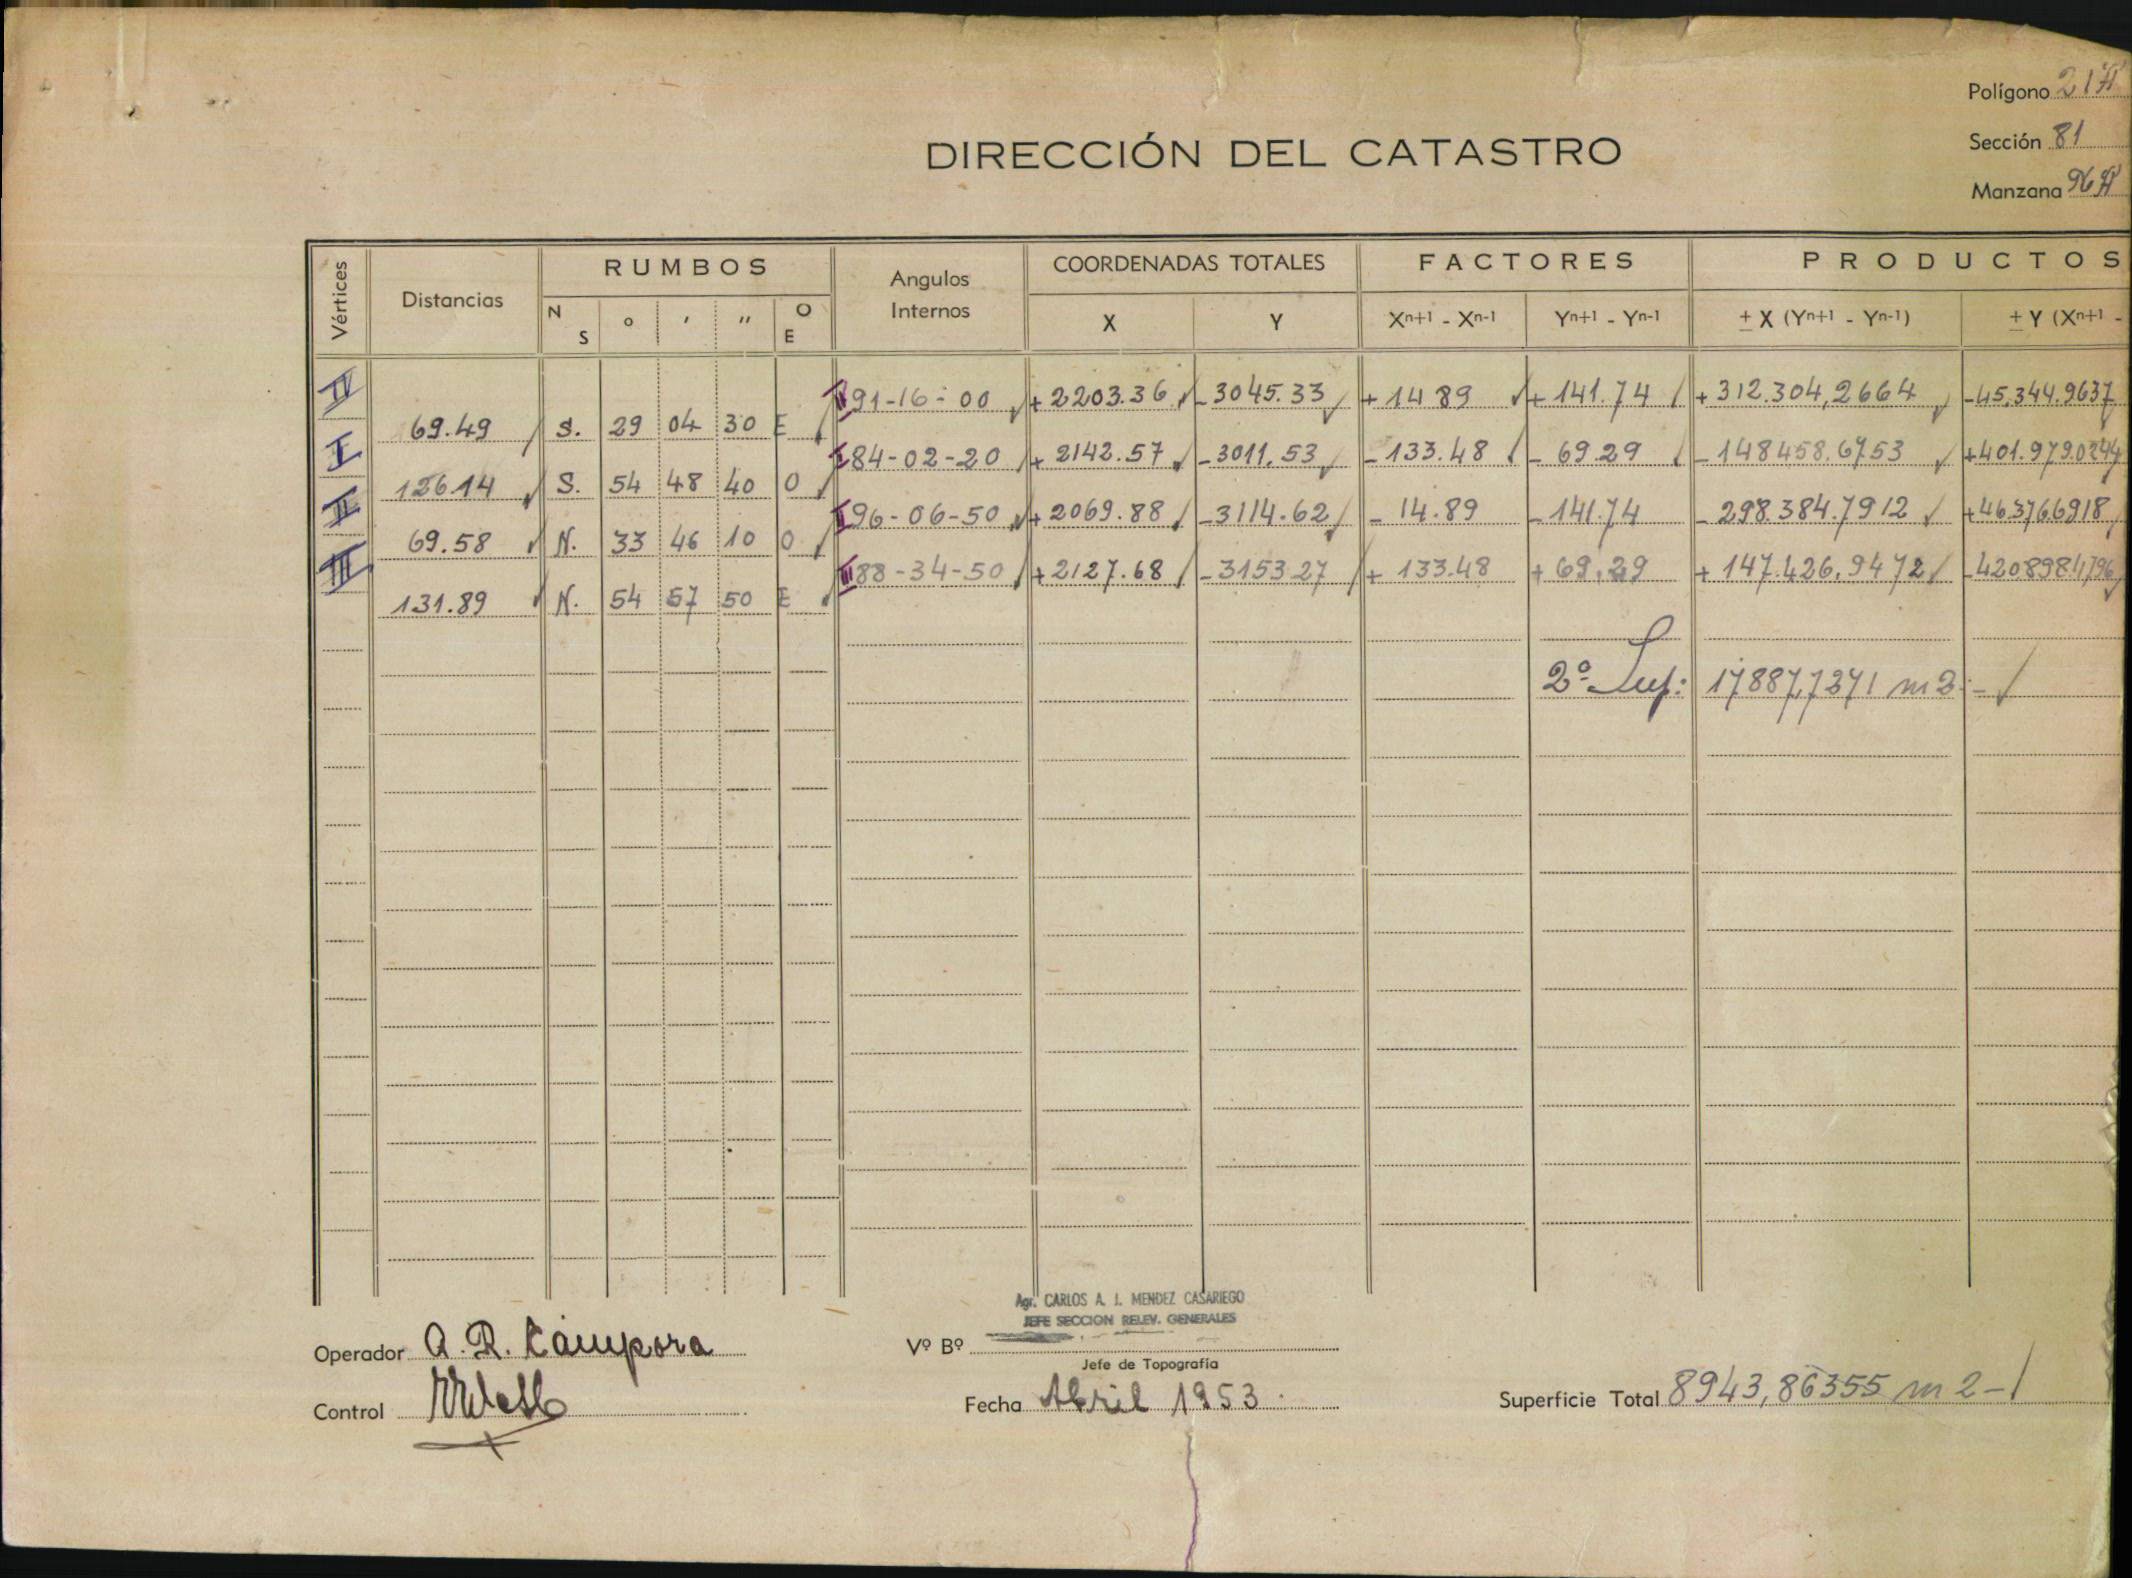 Polígono 21A
Sección 81
Manzana 96A
DIRECCIÓN DEL CATASTRO
Vértices Distancias RUMBOS Angulos Internos COORDENADAS TOTALES FACTORES PRODUCTOS
N S ° ' " O E X Y Xn+1 - Xn-1 Yn+1 - Yn-1 ± X (Yn+1 - Yn-1) ± Y (Xn+1 -
IV IV 91-16-00 +2203.36 -3045.33 +14 89 +141.74 +312.304,2664 -45.344.9637
69.49 S. 29 04 30 E
I I 84-02-20 +2142.57 -3011.53 -133.48 -69.29 -148458.6753 +401.979.0244
126.14 S. 54 48 40 O
II II 96-06-50 +2069.88 -3114.62 -14.89 -141.74 -298.384.7912 +46.376.6918
69.58 N. 33 46 10 O
III III 88-34-50 +2127.68 -3153.27 +133.48 +69.29 +147.426.9472 -420898.4796
131.89 N. 54 57 50 E
2º Sup: 17887,7271 m2.-
Agr. CARLOS A. J. MENDEZ CASARIEGO
JEFE SECCION RELEV. GENERALES
Operador A. R. Cámpora Vº Bº
Jefe de Topografía
Control Fecha Abril 1953. Superficie Total 8943,86355 m2-